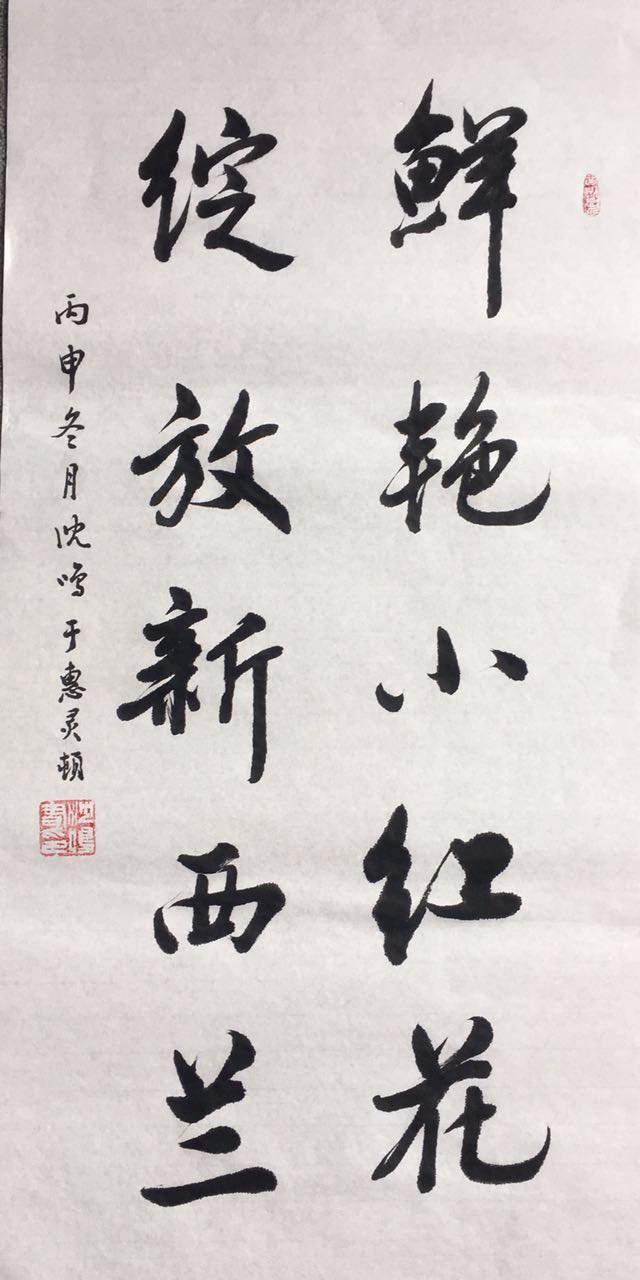 鲜艳小红花
绽放新西兰
丙申冬月沈鸣于惠灵顿